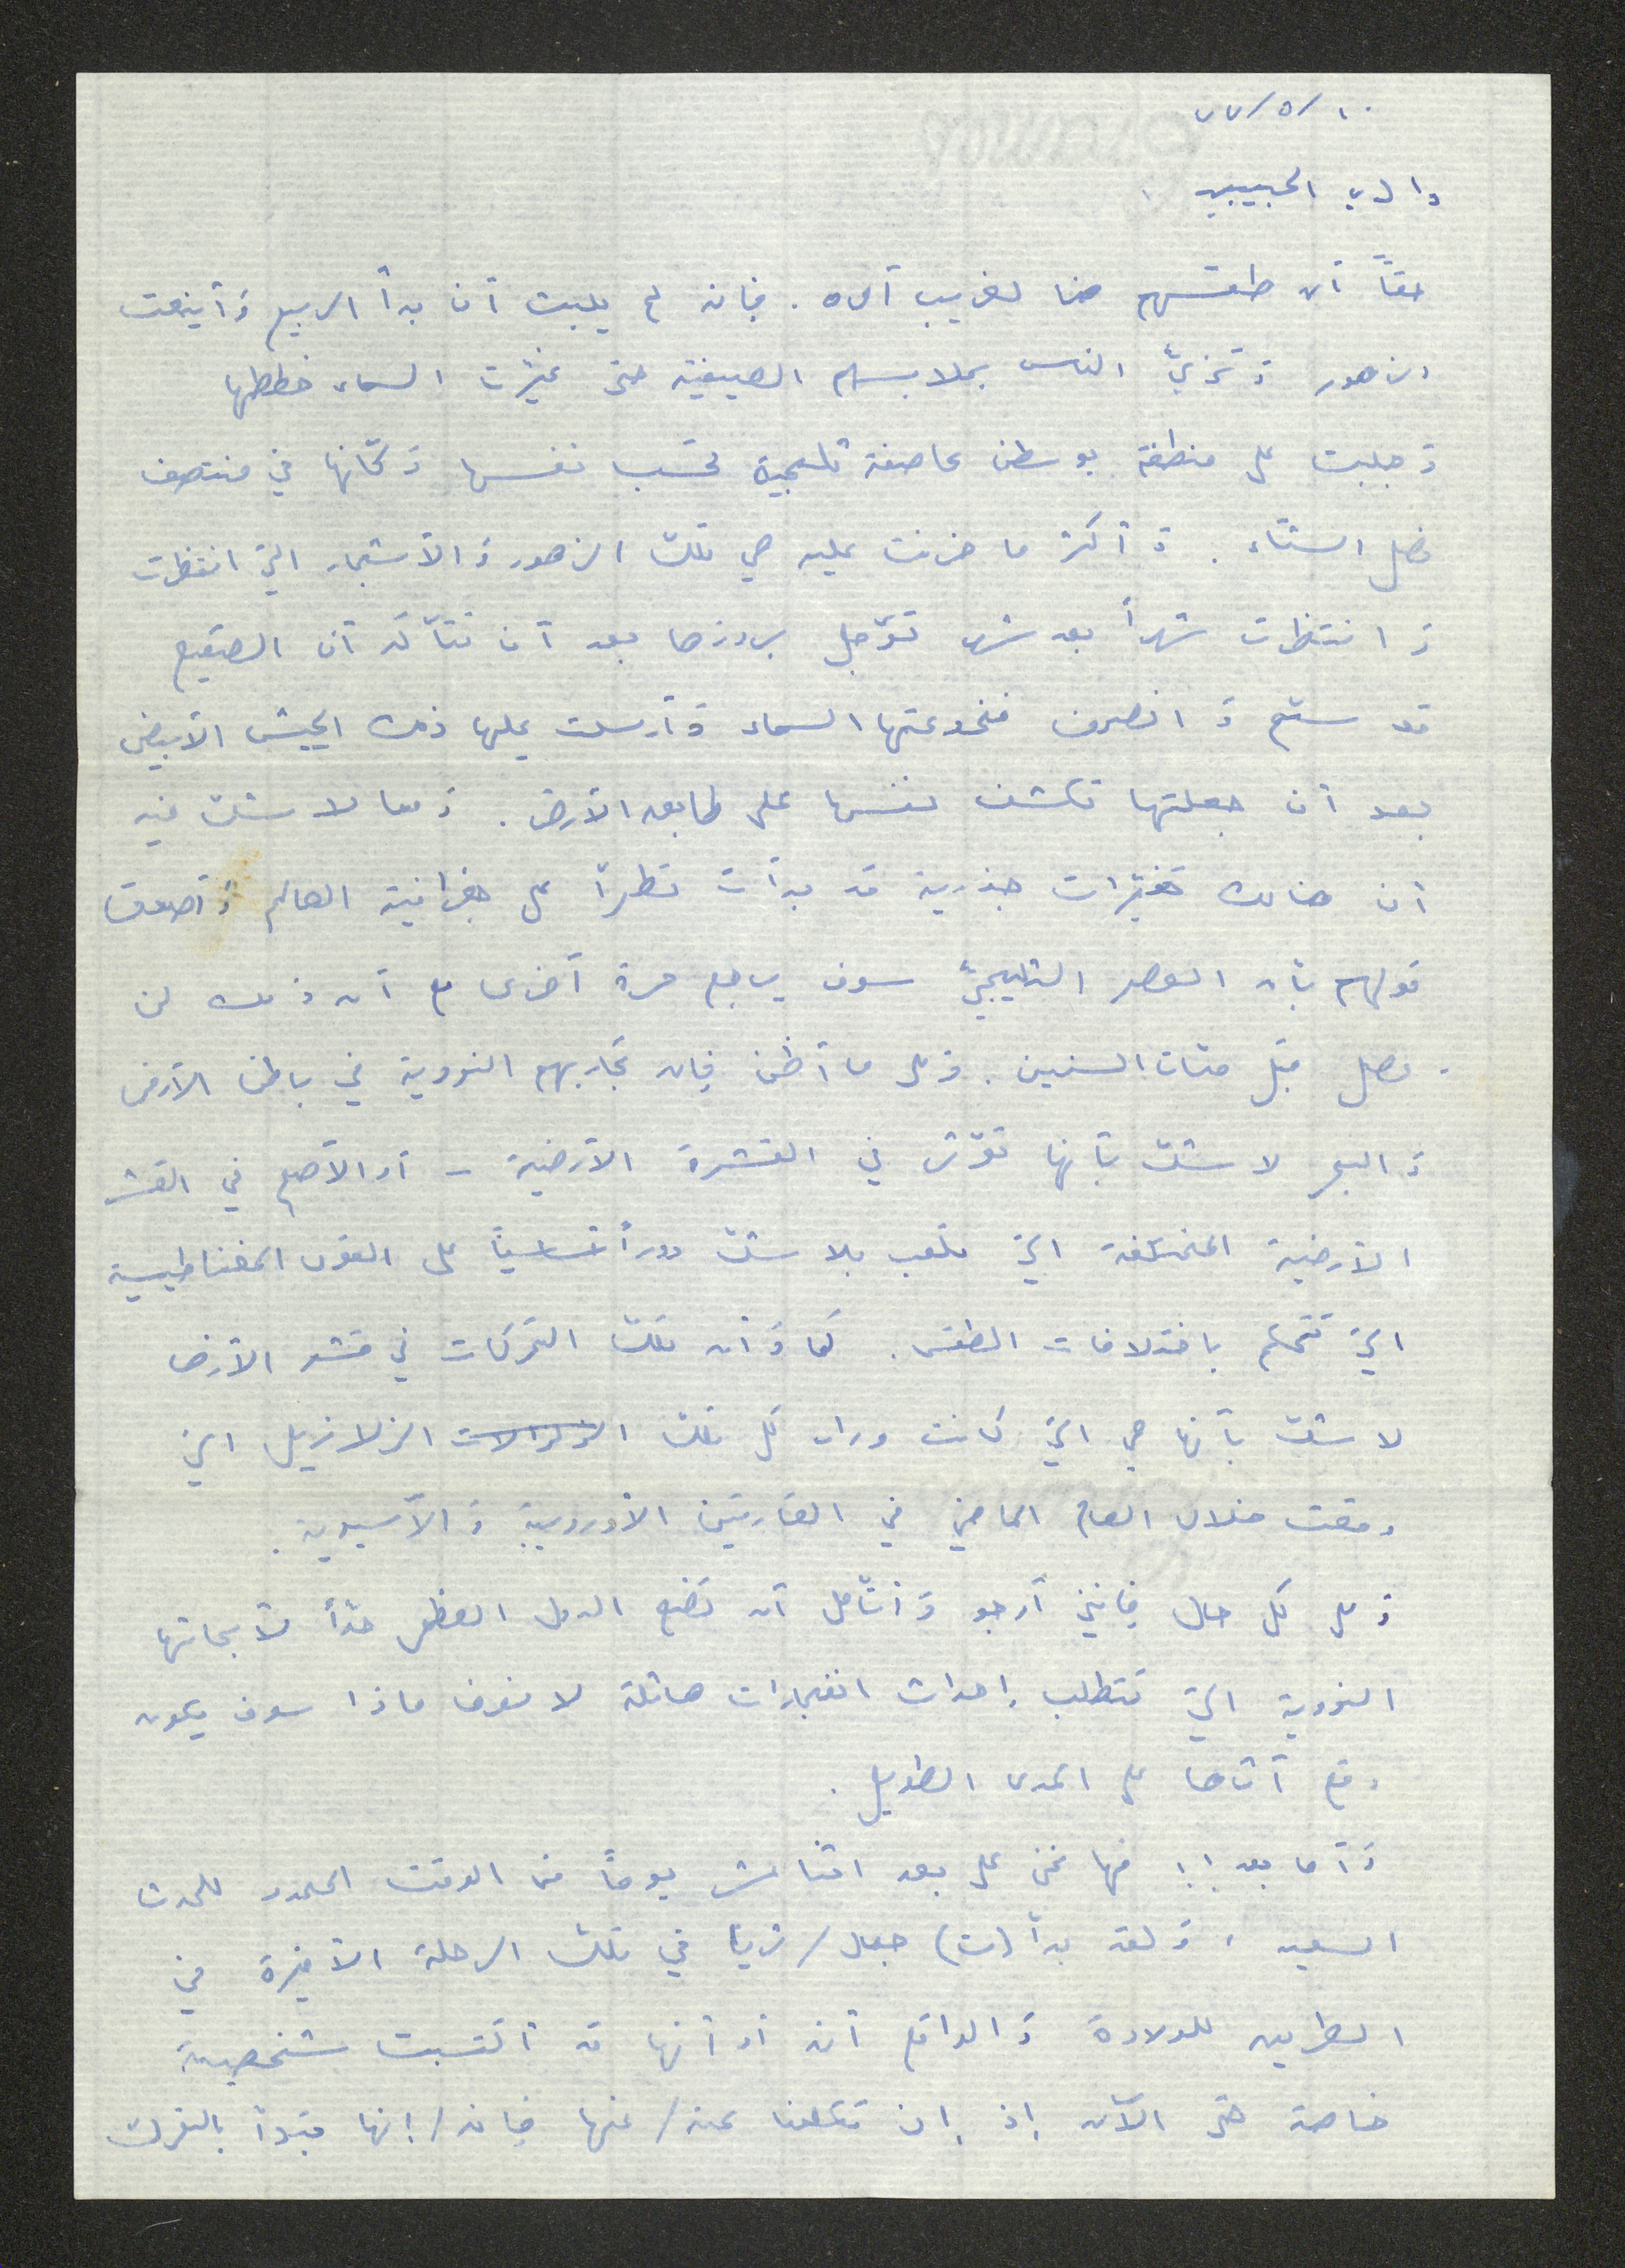 ١٠/٥/٧٧
والدي الحبيبين ،
حقاً أن طقسهم هنا لغريب أمره . فإنه لم يلبث أن بدأ الربيع وَأينعت
الزهور وَتزيّ الناس بملابسهم الصيفية حتى غيّرت السماء خططها
وَجلبت على منطقة بوسطن عاصفة ثلجية تحسب نفسها وَكأنها في منتصف
فصل الشتاء . وَأكثر ما حزنت عليه هي تلك الزهور وَالأشجار التي انتظرت
وَانتظرت شهراً بعد شهر تؤجل بروزها بعد أن تتأكد أن الصقيع
قد سئم وَانصرف فخدعتها السماء وَأرسلت عليها ذلك الجيش الأبيض
بعد أن جعلتها تكشف نفسها على طابعه الأرض . وَمما لا شك فيه
أن هنالك تغيّرات جذرية قد بدأت تطرأ على جغرافية العالم وَأصدق
قولهم بأن العصر الثليجيّ سوف يرجع مرة أخرى مع أن ذلك لن
يحصل قبل مئات السنين . وَعلى ما أظن فإن تجاربهم النووية في باطن الأرض
وَالبحر لا شك بأنها تؤثر في القشرة الأرضية - أو الأصح في القشر
الأرضية المختلفة التي تلعب بلا شك دوراً أساسياً على القوى المغناطيسية
التي تتحكم باختلافات الطقس . كما وَأن تلك التحركات في قشر الأرض
لا شك بأنها هي التي كانت وراء كل تلك الزلازيل التي
وقعت خلال العام الماضي في القارتين الأوروبية وَالآسيوية .
وَعلى كل حال فإنني أرجو وَأتأمل أن تضع الدول العظمى حدّاً لأبحاثها
النووية التي تتطلب إحداث انفجارات هائلة لا نعرف ماذا سوف يكون
وقع آثارها على المدى الطويل .
وَأما بعد !! فها نحن على بعد اثنا عشر يوماً من الوقت المحدد للحدث
السعيد ، وَلقد بدأ (ت) جمال/ثريا في تلك المرحلة الأخيرة في
الطريق للولادة وَالواقع أنه أو أنها قد اكتسبت شخصية
خاصة حتى الآن إذ إن تكلمنا عنه/عنها فإنه/إنها تبدأ بالفرك